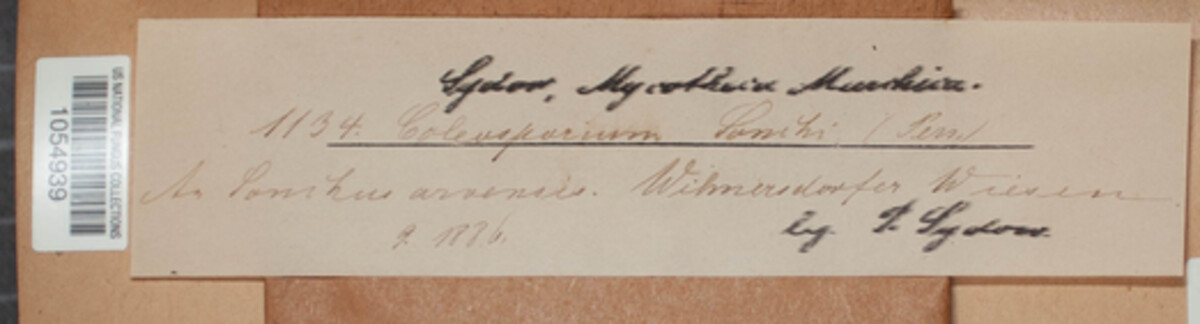 US NATIONAL FUNGUS COLLECTIONS
1054939
Sydow, Mycotheca Marchica.
1134. Coleosporium Sonchi (Pers.)
An Sonchus arvensis. Wilmersdorfer Wiesen
9. 1886.
leg. P. Sydow.